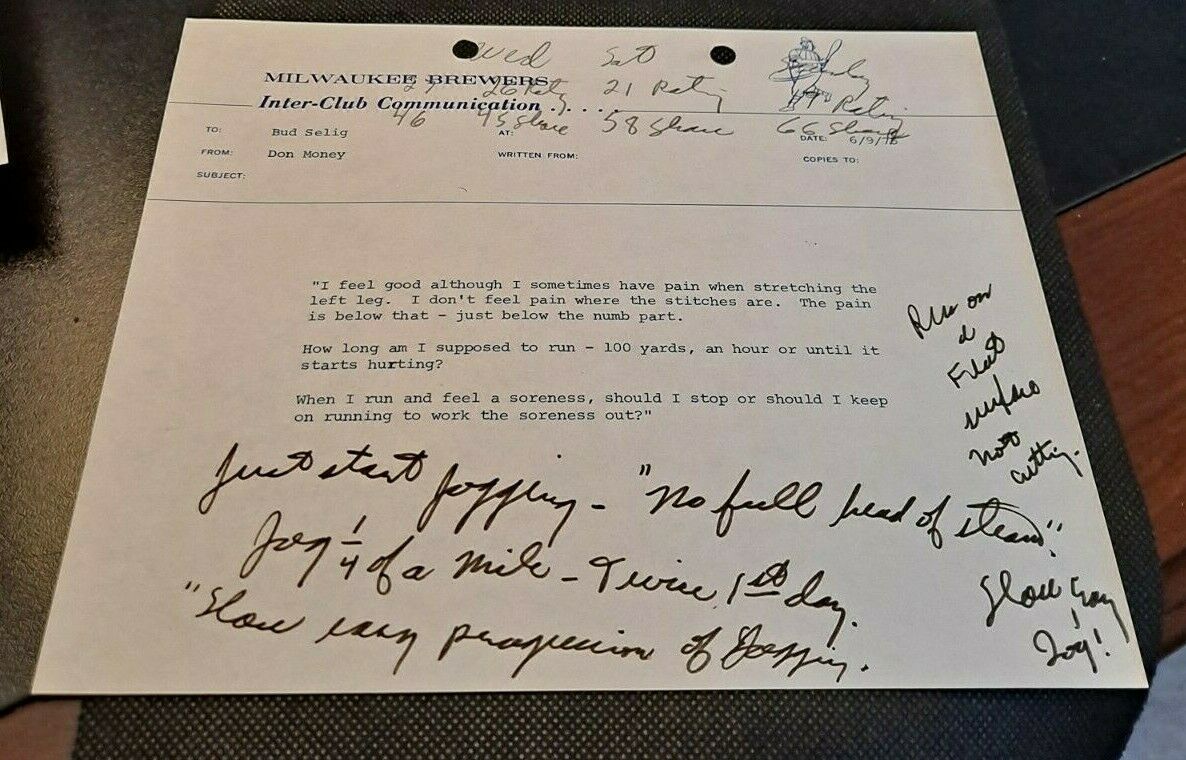 Wed Sat
MILWAUKEE BREWERS 21 Rating
Inter-Club Communication . . . . . Rating
46 45 Share 58 Share 66 Share
TO: Bud Selig AT: DATE: 6/9/
FROM: Don Money WRITTEN FROM: COPIES TO:
SUBJECT:
"I feel good although I sometimes have pain when stretching the
left leg. I don't feel pain where the stitches are. The pain
is below that - just below the numb part.
How long am I supposed to run - 100 yards, an hour or until it
starts hurting?
When I run and feel a soreness, should I stop or should I keep
on running to work the soreness out?"
Run on
a
Flat
surface
not
cutting.
Just start Jogging - "No full head of steam".
Jog 1/4 of a mile - Twice 1st day.
"Slow easy progression of Jogging.
Slow easy
Jog!